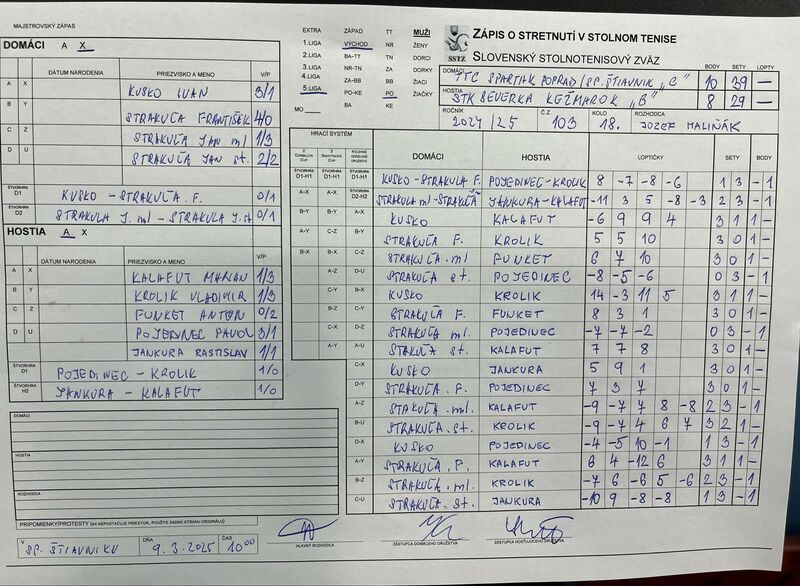 MAJSTROVSKÝ ZÁPAS
DOMÁCI A X
DÁTUM NARODENIA PRIEZVISKO A MENO V/P
A X KUSKO IVAN 3/1
B Y STRAKUĽA FRANTIŠEK 4/0
C Z STRAKUĽA JAN ml 1/3
D U STRAKUĽA JAN st. 2/2
ŠTVORHRA D1 KUSKO - STRAKUĽA F. 0/1
ŠTVORHRA D2 STRAKULA J. ml - STRAKULA J. st 0/1
HOSTIA A X
DÁTUM NARODENIA PRIEZVISKO A MENO V/P
A X KALAFUT MARIAN 1/3
B Y KROLIK VLADIMIR 1/3
C Z FUNKET ANTON 0/2
D U POJEDINEC PAVOL 3/1
JANKURA RASTISLAV 1/1
ŠTVORHRA D1 POJEDINEC - KROLIK 1/0
ŠTVORHRA H2 JANKURA - KALAFUT 1/0
DOMÁCI
HOSTIA
ROZHODCA
PRIPOMIENKY/PROTESTY (AK NEPOSTAČUJE PRIESTOR, POUŽITE ZADNÚ STRANU ORIGINÁLU)
V SP. ŠTIAVNIKU DŇA 9.3.2025 ČAS 10 00
EXTRA ZÁPAD TT MUŽI
1.LIGA VÝCHOD NR ŽENY
2.LIGA BA-TT TN DORCI
3.LIGA NR-TN ZA DORKY
4.LIGA ZA-BB BB ŽIACI
5.LIGA PO-KE PO ŽIAČKY
MO BA KE
SSTZ
ZÁPIS O STRETNUTÍ V STOLNOM TENISE
SLOVENSKÝ STOLNOTENISOVÝ ZVÄZ
BODY SETY LOPTY
DOMÁCI TTC SPARTAK POPRAD/SP. ŠTIAVNIK "C" 10 39 —
HOSTIA STK SEVERKA KEŽMAROK "B" 8 29 —
ROČNÍK 2024/25 Č.Z. 103 KOLO 18. ROZHODCA JOZEF MALIŇÁK
HRACÍ SYSTÉM
2 CORBILLON CUP 3 SWAYTHLING CUP
DOMÁCI HOSTIA LOPTIČKY SETY BODY
ŠTVORHRA D1-H1 ŠTVORHRA D1-H1 ŠTVORHRA D1-H1 KUSKO - STRAKULA F. POJEDINEC - KROLIK 8 -7 -8 -6 1 3 - 1
A-X A-X ŠTVORHRA D2-H2 STRAKULA ml - STRAKUĽA JANKURA - KALAFUT -11 3 5 -8 -3 2 3 - 1
B-Y B-Y A-X KUSKO KALAFUT -6 9 9 4 3 1 1 -
A-Y C-Z B-Y STRAKUĽA F. KROLIK 5 5 10 3 0 1 -
B-X B-X C-Z STRAKUĽA. ml FUNKET 6 7 10 3 0 1 -
A-Z D-U STRAKUĽA st. POJEDINEC -8 -5 -6 0 3 - 1
C-Y B-X KUSKO KROLIK 14 -3 11 5 3 1 1 -
B-Z C-Y STRAKUĽA F. FUNKET 8 3 1 3 0 1 -
C-X D-Z STRAKUĽA ml. POJEDINEC -7 -7 -2 0 3 - 1
A-Y A-U STAKUĽA st. KALAFUT 7 7 8 3 0 1 -
C-X KUSKO JANKURA 5 9 1 3 0 1 -
D-Y STRAKUĽA. F. POJEDINEC 7 3 7 3 0 1 -
A-Z STAKUĽA .ml. KALAFUT -9 -7 7 8 -8 2 3 - 1
B-U STRAKUĽA. st. KROLIK -9 -7 4 6 7 3 2 1 -
D-X KUSKO POJEDINEC -4 -5 10 -1 1 3 - 1
A-Y STRAKUĽA. F. KALAFUT 6 4 -12 6 3 1 1 -
B-Z STRAKUĽA. ml. KROLIK -7 6 -6 5 -6 2 3 - 1
C-U STRAKUĽA. st. JANKURA -10 9 -8 -8 1 3 - 1
HLAVNÝ ROZHODCA ZÁSTUPCA DOMÁCEHO DRUŽSTVA ZÁSTUPCA HOSŤUJÚCEHO DRUŽSTVA